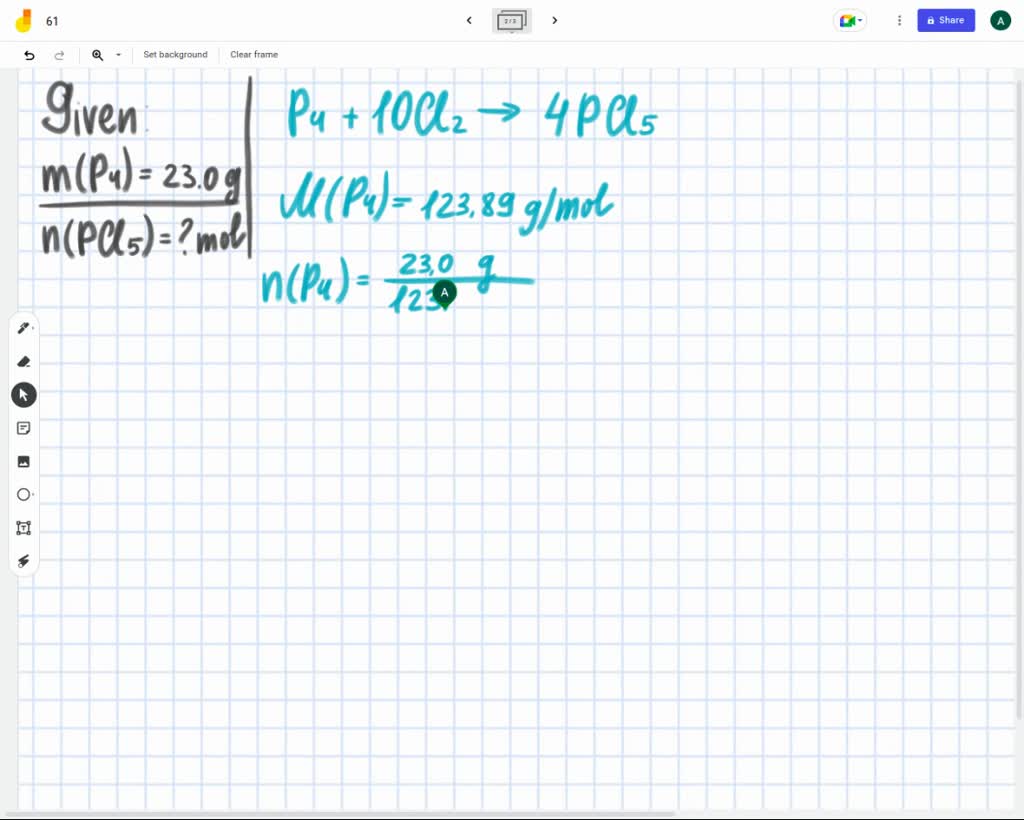 61
2/3
Share
A
Set background
Clear frame
Given
m(P₄) = 23.0 g
n(PCl₅) = ? mol
P₄ + 10Cl₂ → 4PCl₅
M(P₄) = 123,89 g/mol
n(P₄) = 23,0 g
123,
A